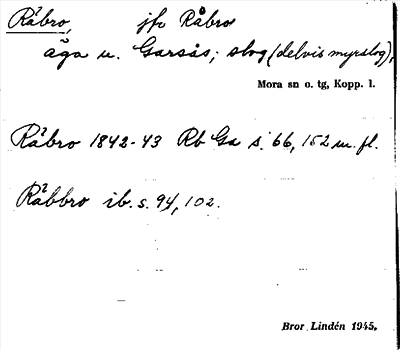 Råbro, jfr Råbro
äga u. Garsås; slog (delvis myrslog),
Mora sn o. tg, Kopp. l.
Råbro 1842-43 Rb Ga s. 66, 152 m. fl.
Råbbro ib. s. 94, 102.
Bror Lindén 1945.